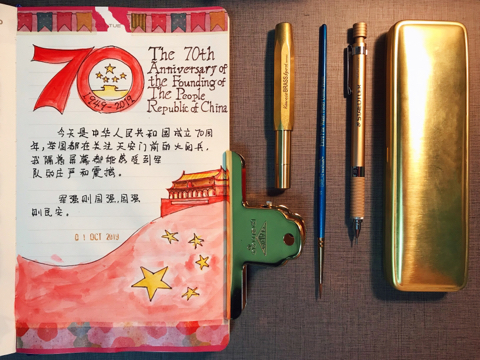 70
1949-2019
The 70th
Anniversary of
the Founding of
The People
Republic of China
今天是中华人民共和国成立70周
年,举国都在关注天安门前的大阅兵,
我隔着屏幕都能感受到军
队的庄严和震撼。
军强则国强,国强
则民安。
01 OCT 2019
BRASS